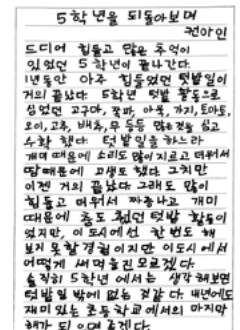 5학년을 되돌아보며
전아인
드디어 힘들고 많은 추억이
있었던 5학년이 끝나간다.
1년동안 아주 힘들었던 텃밭일이
거의 끝났다. 5학년 텃밭 활동으로
심었던 고구마, 쪽파, 아욱, 가지, 토마토,
오이, 고추, 배추, 무 등등 많은것을 심고
수확 했다. 텃밭일을 하느라
개미 때문에 소리도 많이 지르고 더워서
땀 때문에 고생도 했다. 그치만
이젠 거의 끝났다 그래도 많이
힘들고 더워서 짜증나고 개미
때문에 춤도 췄던 텃밭 활동이
었지만, 이 도시에선 한번도 해
보지 못할 경험이지만 이도시에서
어떻게 써먹을진 모르겠다.
솔직히 5학년에서는 생각해보면
텃밭일 밖에 없는 것같다. 내년에도
재미있는 초등학교에서의 마지막
해가 되으면 좋겠다.